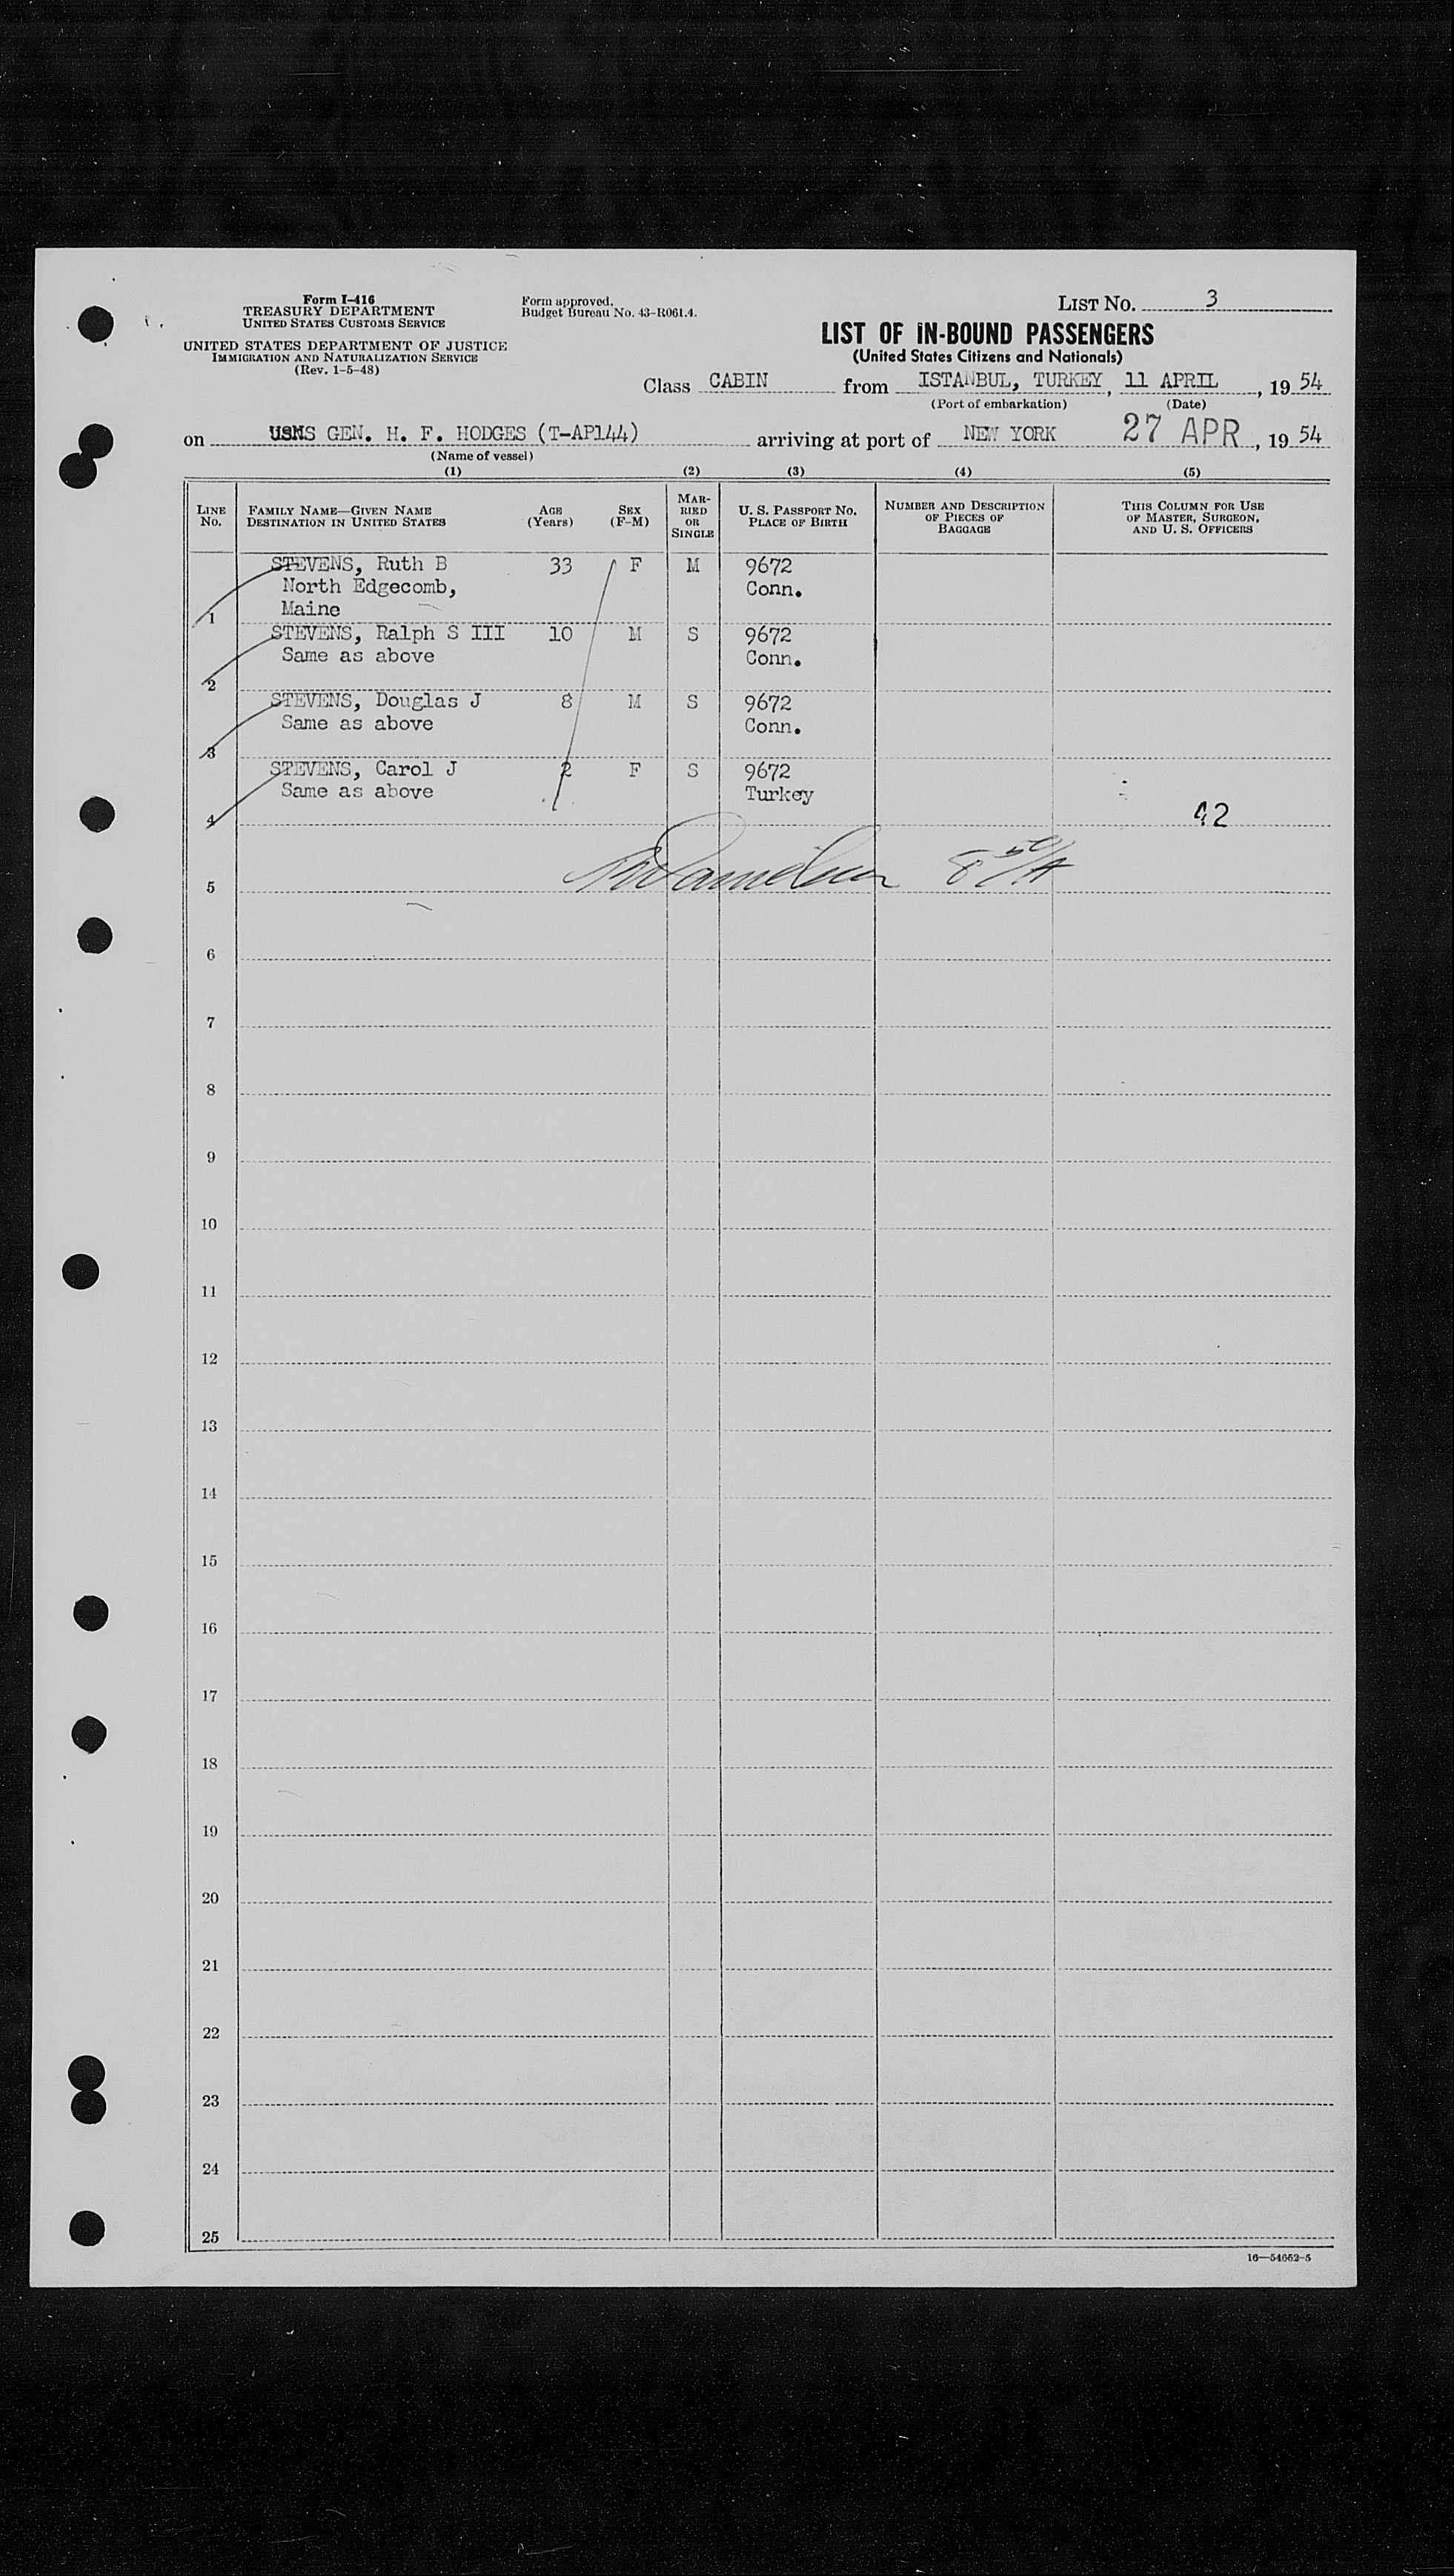 Form I-416
TREASURY DEPARTMENT
UNITED STATES CUSTOMS SERVICE
UNITED STATES DEPARTMENT OF JUSTICE
IMMIGRATION AND NATURALIZATION SERVICE
(Rev. 1-5-48)
Form approved.
Budget Bureau No. 43-R061.4.
LIST No. 3
LIST OF IN-BOUND PASSENGERS
(United States Citizens and Nationals)
Class CABIN from ISTANBUL, TURKEY, 11 APRIL, 1954
(Port of embarkation) (Date)
on USNS GEN. H. F. HODGES (T-AP144) arriving at port of NEW YORK 27 APR, 1954
(Name of vessel)
(1) (2) (3) (4) (5)
LINE No. FAMILY NAME—GIVEN NAME DESTINATION IN UNITED STATES AGE (Years) SEX (F-M) MARRIED OR SINGLE U. S. PASSPORT No. PLACE OF BIRTH NUMBER AND DESCRIPTION OF PIECES OF BAGGAGE THIS COLUMN FOR USE OF MASTER, SURGEON, AND U. S. OFFICERS
STEVENS, Ruth B 33 F M 9672
North Edgecomb, Conn.
1 Maine
STEVENS, Ralph S III 10 M S 9672
Same as above Conn.
2
STEVENS, Douglas J 8 M S 9672
Same as above Conn.
3
STEVENS, Carol J 2 F S 9672
Same as above Turkey
4 42
5
6
7
8
9
10
11
12
13
14
15
16
17
18
19
20
21
22
23
24
25
16—54652-5